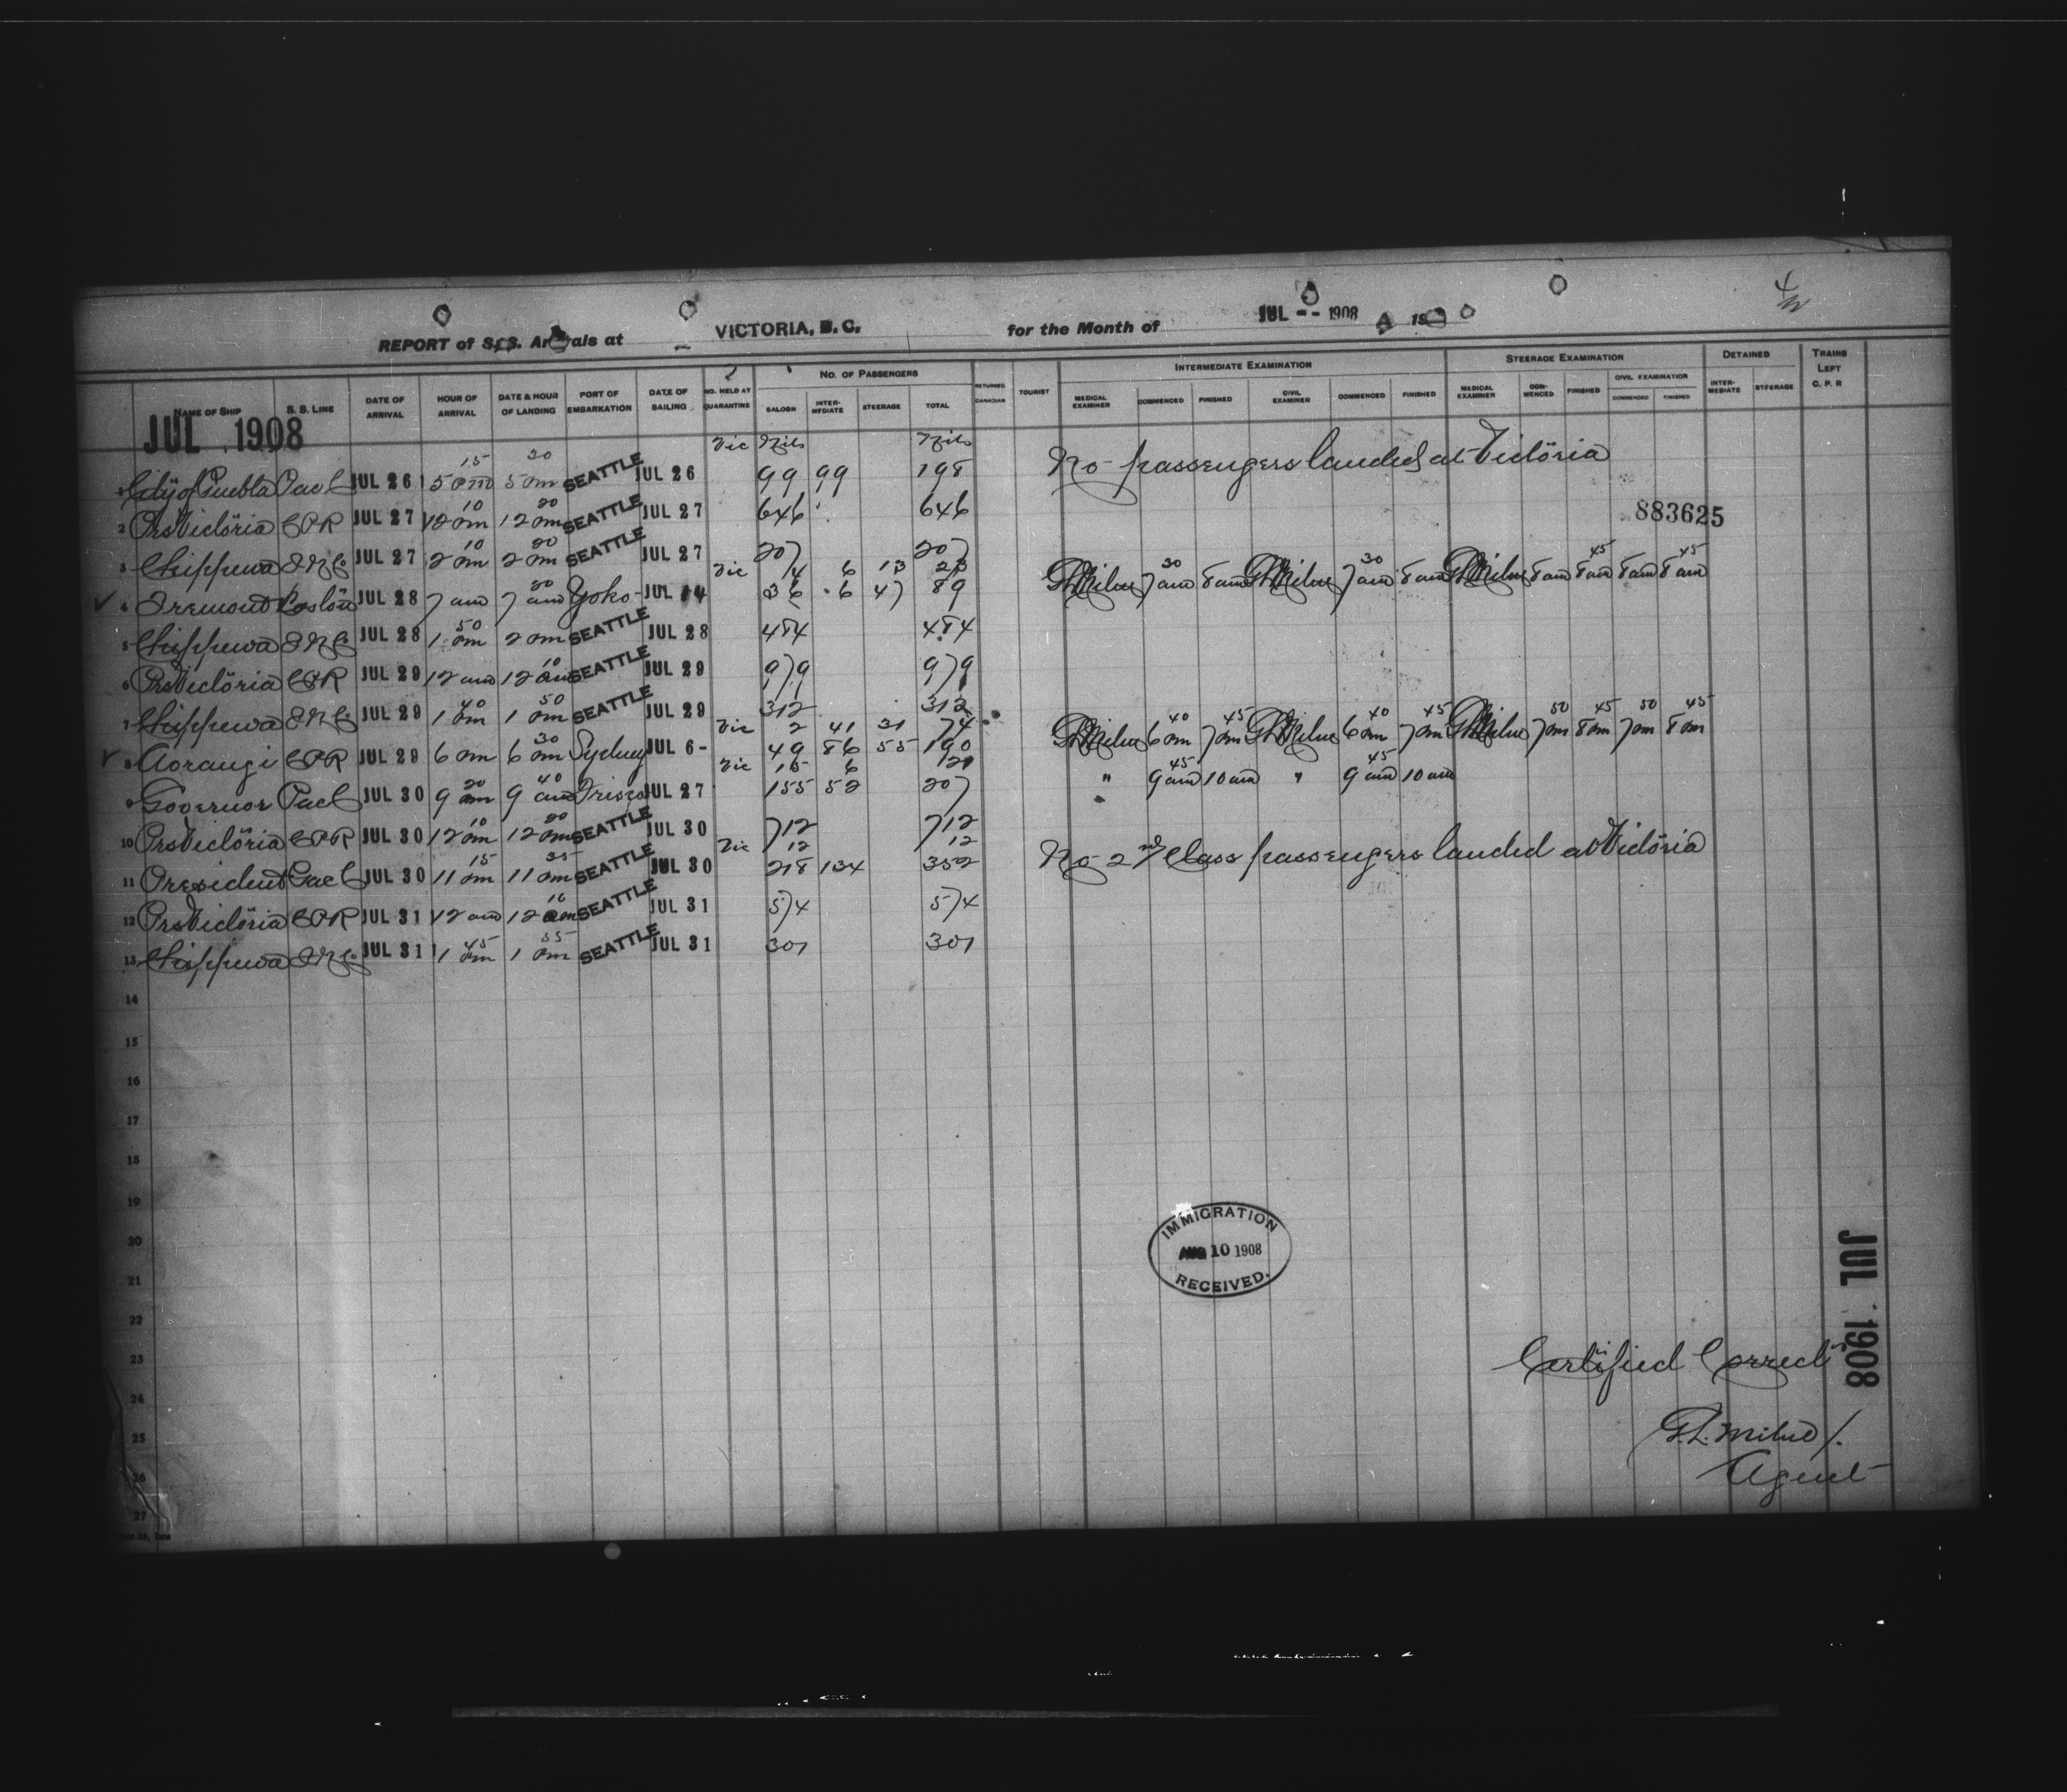 4
REPORT of S.S. Arrivals at VICTORIA, B. C. for the Month of JUL -- 1908 19
NAME OF SHIP S. S. LINE DATE OF ARRIVAL HOUR OF ARRIVAL DATE & HOUR OF LANDING PORT OF EMBARKATION DATE OF SAILING NO. HELD AT QUARANTINE NO. OF PASSENGERS SALOON INTER-MEDIATE STEERAGE TOTAL RETURNED CANADIAN TOURIST INTERMEDIATE EXAMINATION MEDICAL EXAMINER COMMENCED FINISHED CIVIL EXAMINER COMMENCED FINISHED STEERAGE EXAMINATION MEDICAL EXAMINER COM-MENCED FINISHED CIVIL EXAMINATION COMMENCED FINISHED DETAINED INTER-MEDIATE STEERAGE TRAINS LEFT C. P. R
JUL 1908
Vic Nil Nil
1 City of Puebla Pac C JUL 26 5 15 pm 5 20 pm SEATTLE JUL 26 99 99 198 No passengers landed at Victoria
2 Prs Victoria CPR JUL 27 12 10 pm 12 20 pm SEATTLE JUL 27 646 646 883625
3 Chippewa JUL 27 2 10 pm 2 20 pm SEATTLE JUL 27 207 207
Vic 4 6 13 23
4 Tremont Boston JUL 28 7 am 7 20 am Yoko- JUL 14 36 6 47 89 GLMilne 7 30 am 8 am GLMilne 7 30 am 8 am GLMilne 8 am 8 45 am 8 am 8 45 am
5 Chippewa JUL 28 1 50 pm 2 pm SEATTLE JUL 28 484 484
6 Prs Victoria CPR JUL 29 12 am 12 10 am SEATTLE JUL 29 979 979
7 Chippewa JUL 29 1 40 pm 1 50 pm SEATTLE JUL 29 312 312
Vic 2 41 31 74
8 Aorangi CPR JUL 29 6 pm 6 30 pm Sydney JUL 6- 49 86 55 190 GLMilne 6 40 pm 7 45 pm GLMilne 6 40 pm 7 45 pm GLMilne 7 50 pm 8 45 pm 7 50 pm 8 45 pm
Vic 15 6 21
9 Governor Pac C JUL 30 9 20 am 9 40 am Frisco JUL 27 155 52 207 " 9 45 am 10 am " 9 45 am 10 am
10 Prs Victoria CPR JUL 30 12 10 pm 12 20 pm SEATTLE JUL 30 712 712
Vic 12 12
11 President Pac C JUL 30 11 15 pm 11 35 pm SEATTLE JUL 30 218 134 352 No 2nd Class passengers landed at Victoria
12 Prs Victoria CPR JUL 31 12 am 12 10 am SEATTLE JUL 31 574 574
13 Chippewa JUL 31 1 45 pm 1 55 pm SEATTLE JUL 31 301 301
14
15
16
17
18
19
20
21
22
23
24
25
26
27
IMMIGRATION
AUG 10 1908
RECEIVED.
JUL 1908
Certified Correct
G.L. Milne
Agent